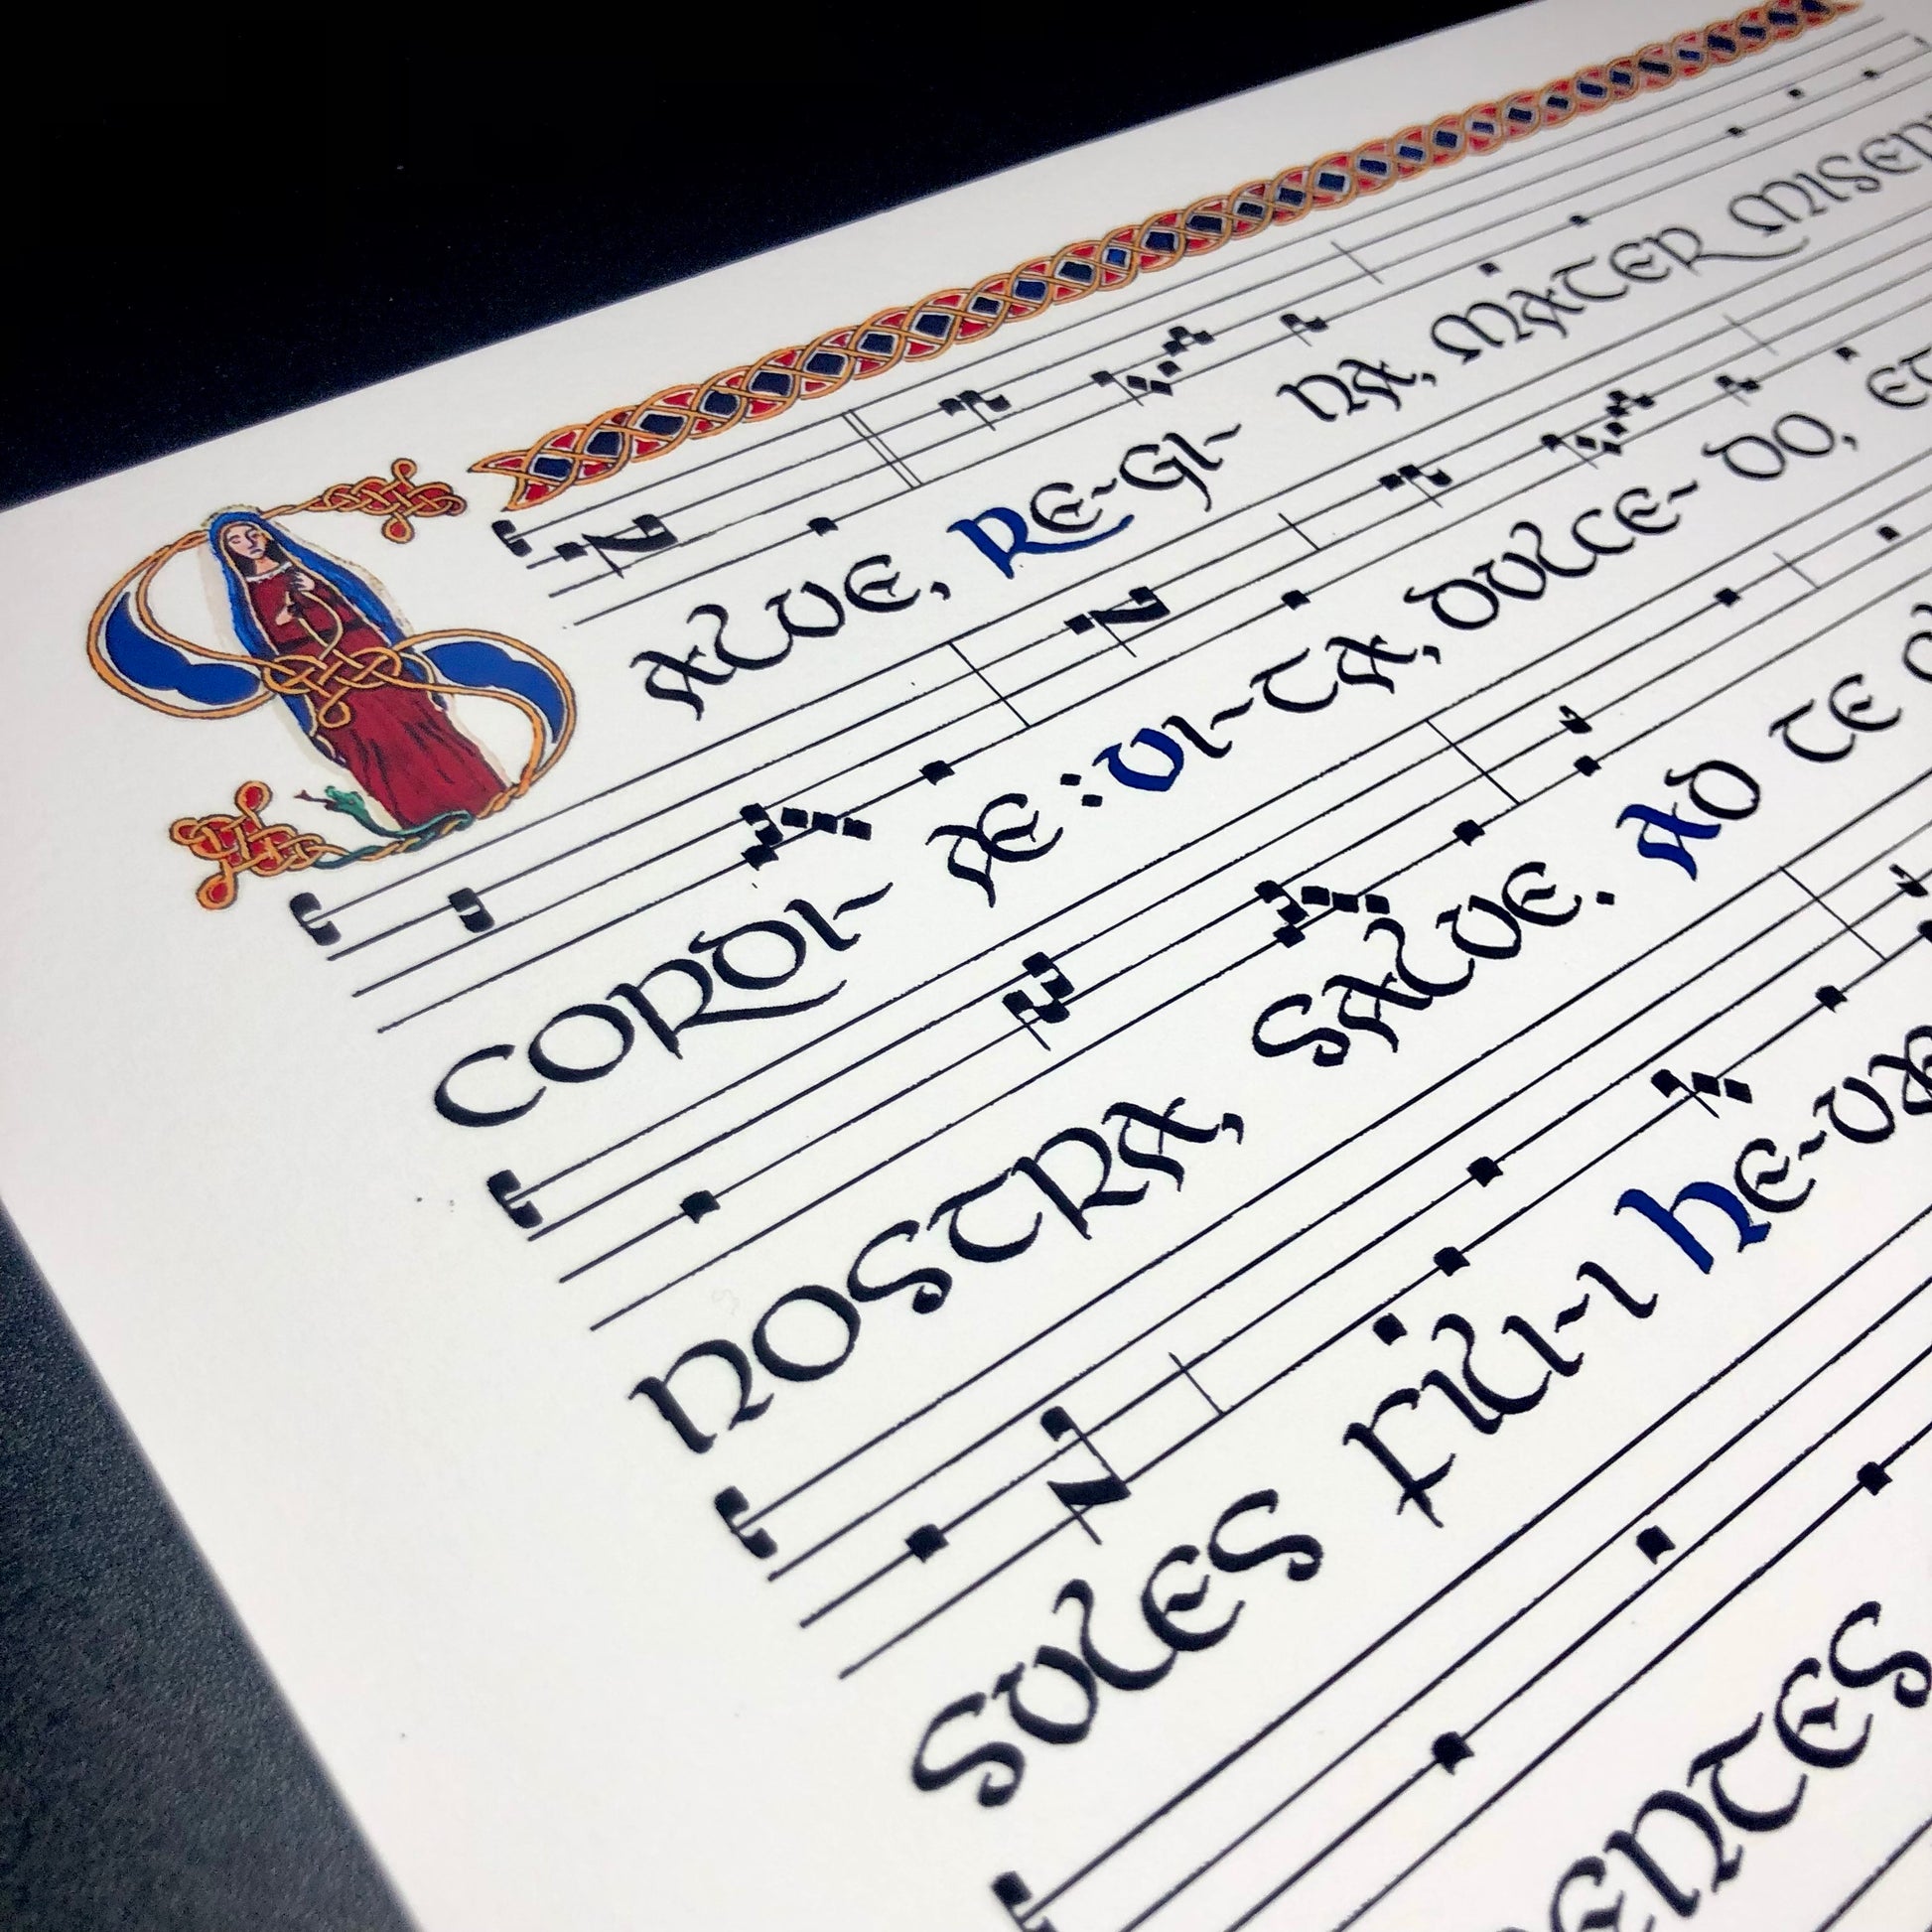 SALVE, RE-GI- NA, MATER MISERI
CORDI- AE: VI-TA, DULCE- DO, ET
NOSTRA, SALVE. AD TE
SULES FILI-I HE-VAE
ENTES